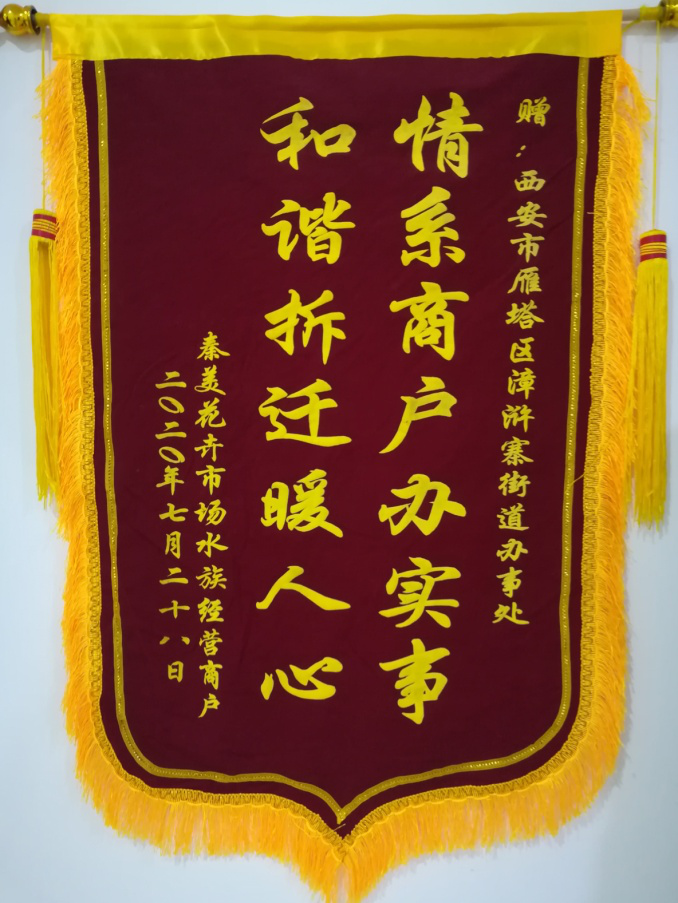 赠：西安市雁塔区漳浒寨街道办事处
情系商户办实事
和谐拆迁暖人心
秦美花卉市场水族经营商户
二〇二〇年七月二十八日